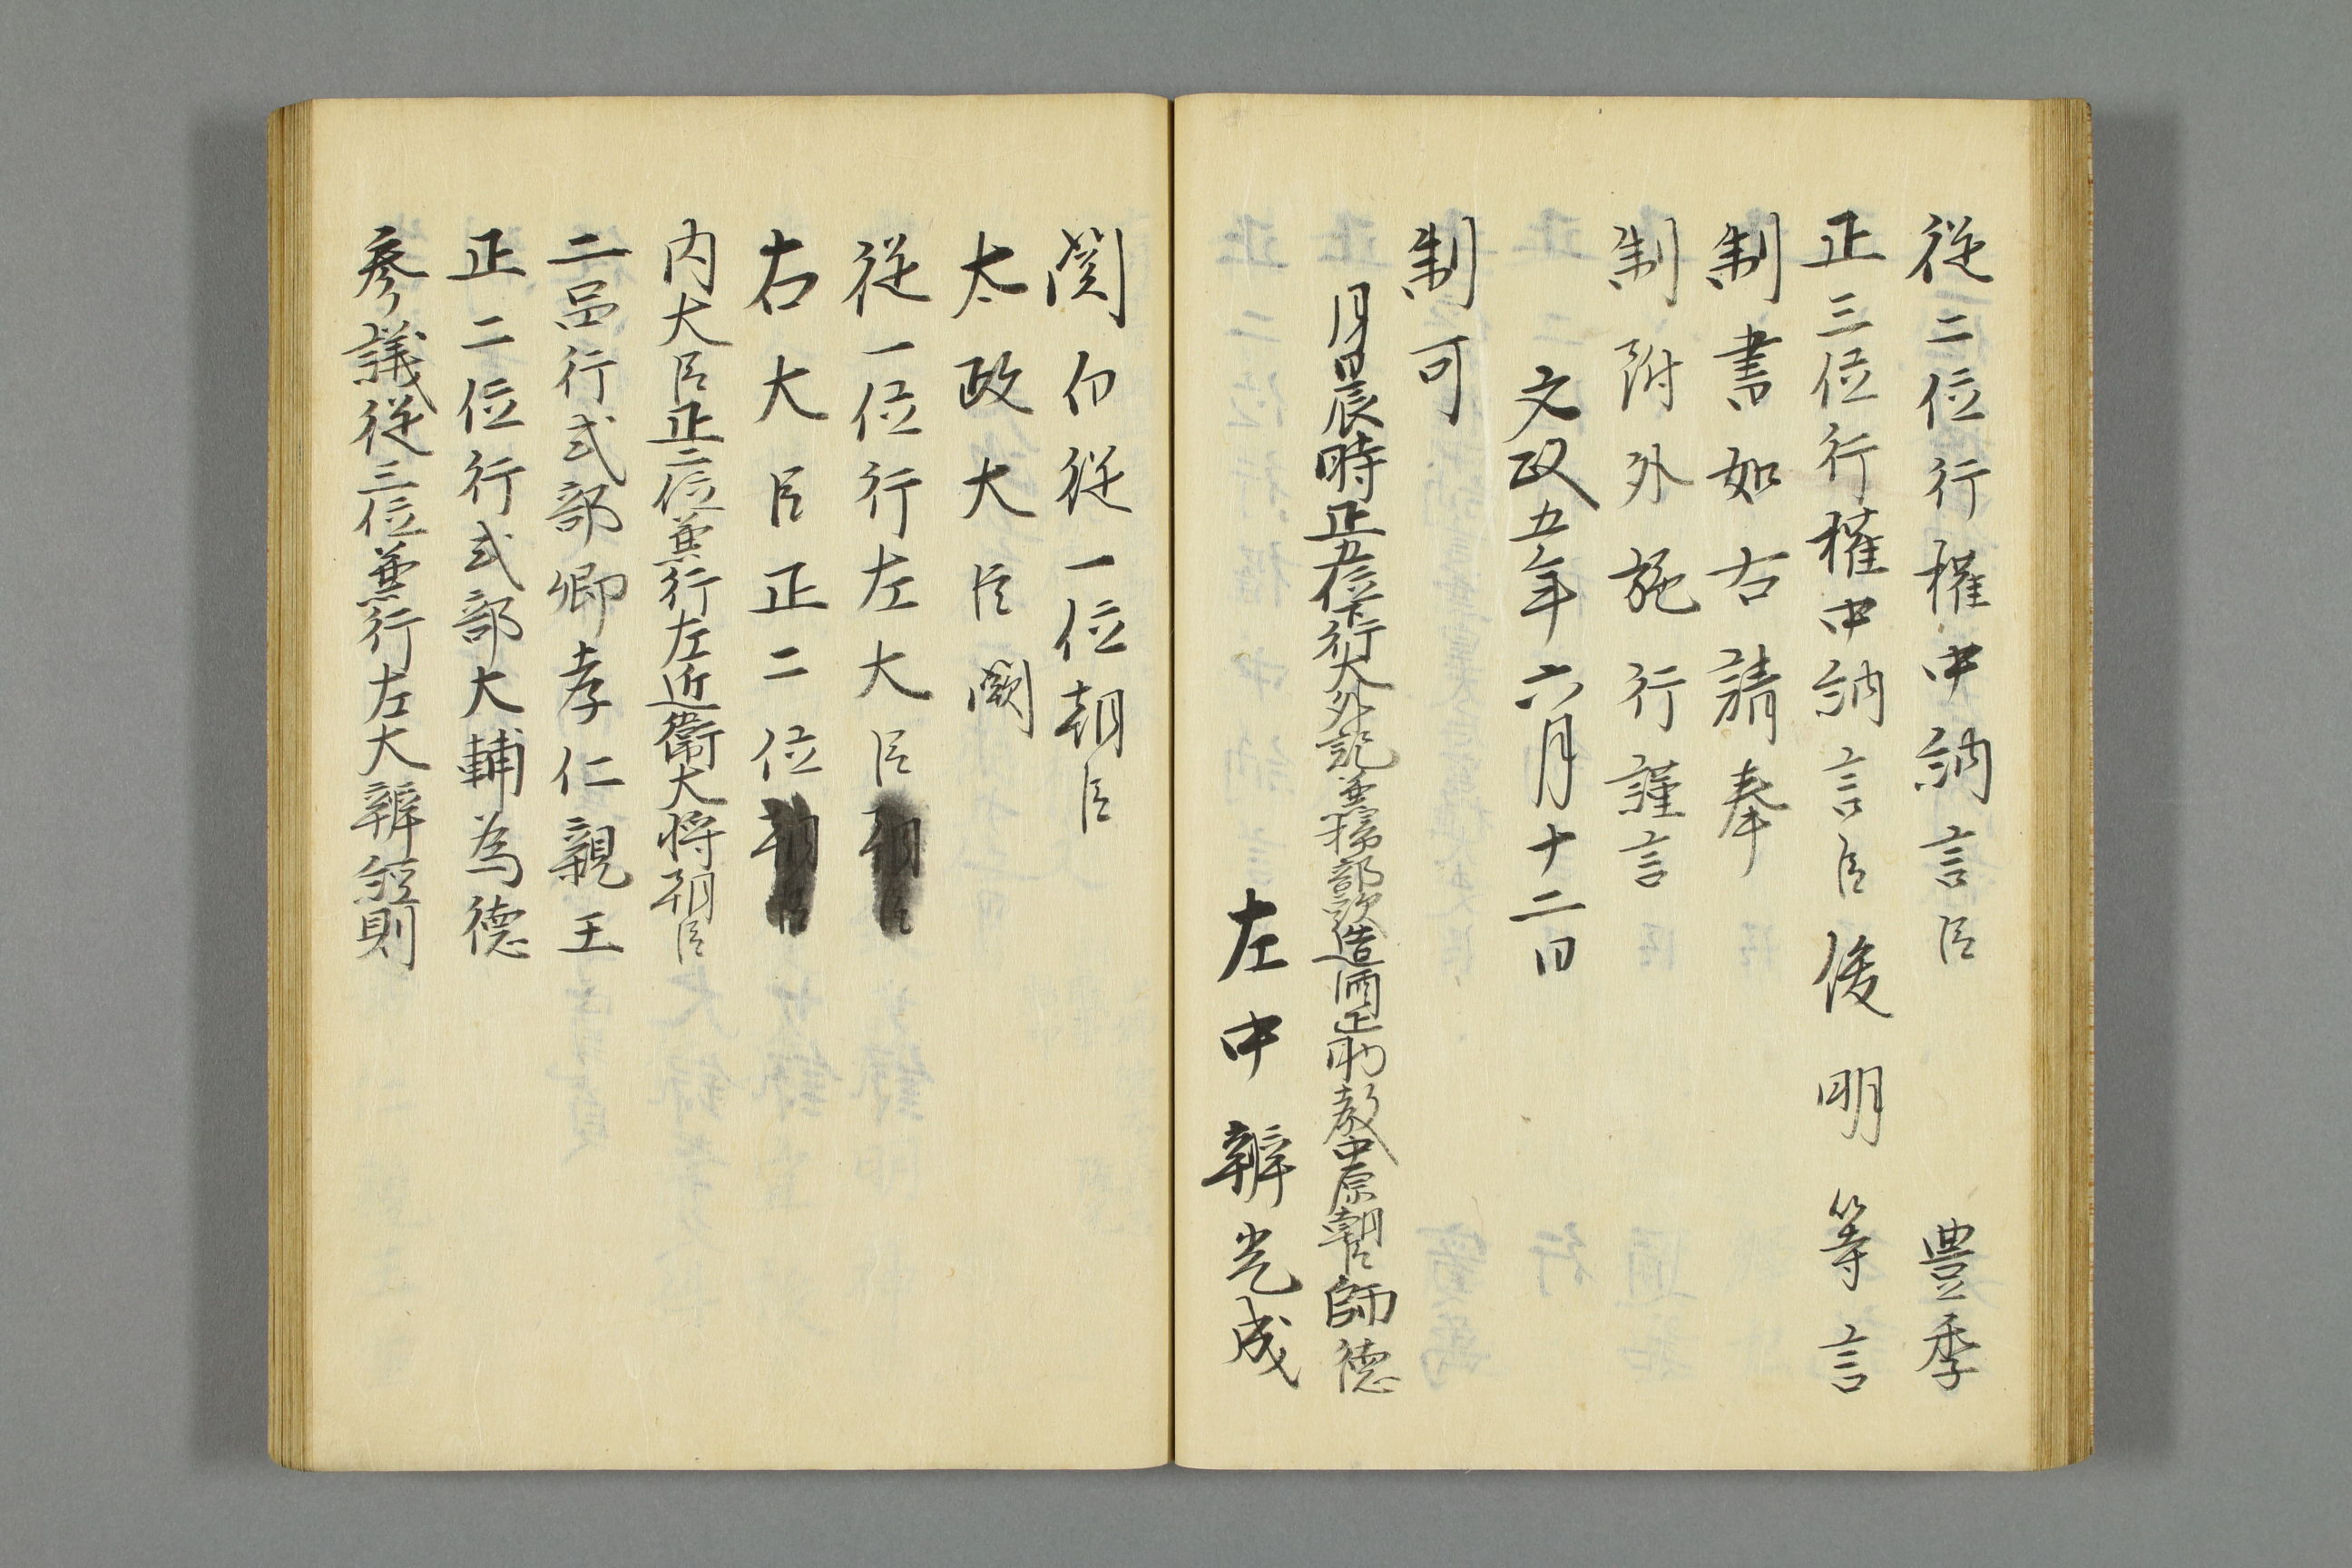 従二位行権中納言臣 豊季
正三位行権中納言臣俊明等言
制書如右請奉
制附外施行謹言
文政五年六月十二日
制可
月日辰時正五位下行大外記兼掃部頭造酒正助教中原朝臣師徳
左中辨光成
関白従一位朝臣
太政大臣闕
従一位行左大臣朝臣
右大臣正二位朝臣
内大臣正二位兼行左近衛大将朝臣
二品行式部卿孝仁親王
正二位行式部大輔為徳
参議従三位兼行左大辨経則